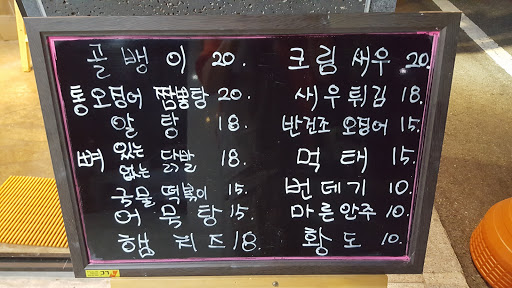 골뱅이 20.
통오덩어 짬뽕탕 20.
알탕 18.
뼈 있는 없는 닭발 18.
국물 떡볶이 15.
어묵탕 15.
햄치즈 18.
크림새우 20.
새우튀김 18.
반건조 오덩어 15.
먹태 15.
번데기 10.
마른안주 10.
황도 10.